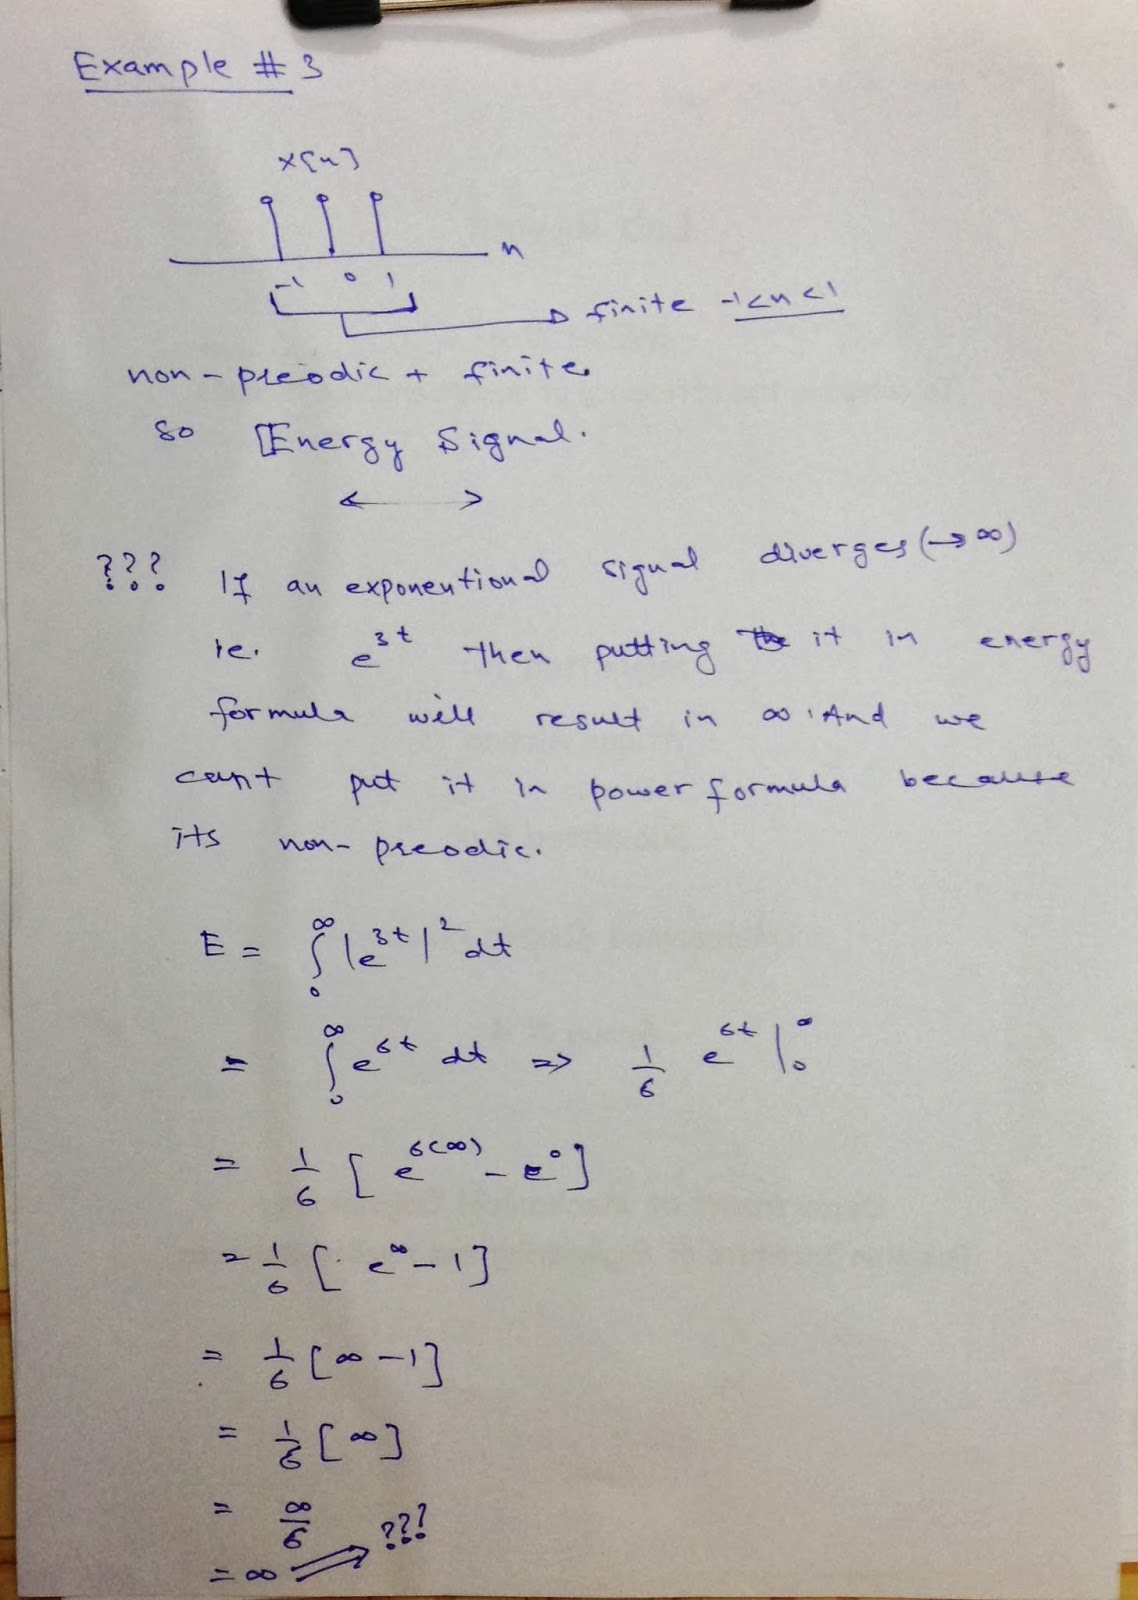 Example # 3
x[n]
n
-1 0 1
finite -1<n<1
non-preodic + finite.
so [Energy Signal.
??? If an exponentional signal diverges (→∞)
ie. e^3t then putting it in energy
formula will result in ∞. And we
cant put it in power formula because
its non-preodic.
E = ∫₀^∞ |e^3t|² dt
= ∫₀^∞ e^6t dt => 1/6 e^6t |₀^∞
= 1/6 [e^6(∞) - e^0]
= 1/6 [e^∞ - 1]
= 1/6 [∞ - 1]
= 1/6 [∞]
= ∞/6
= ∞ ⇒ ???